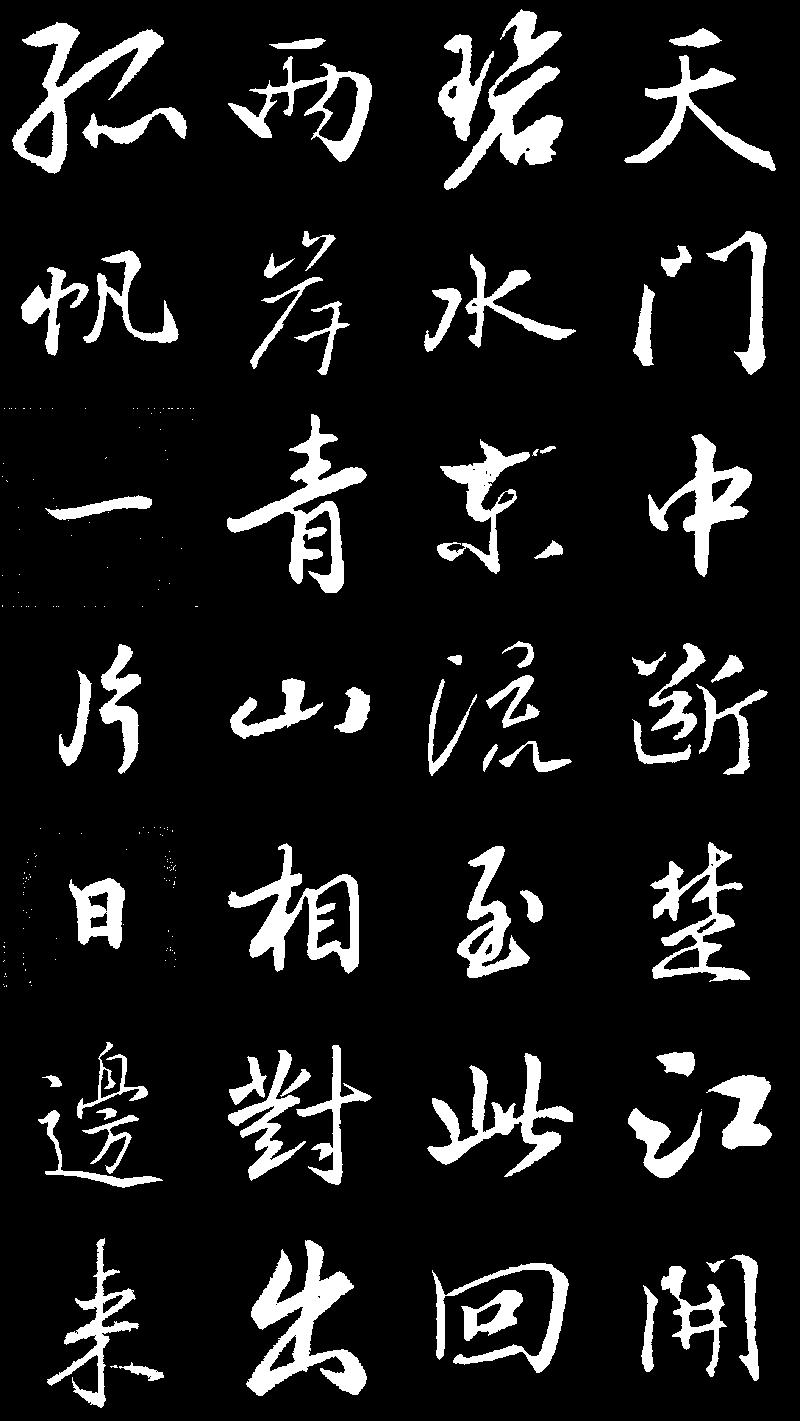 天門中斷楚江開
碧水東流至此回
兩岸青山相對出
孤帆一片日邊来